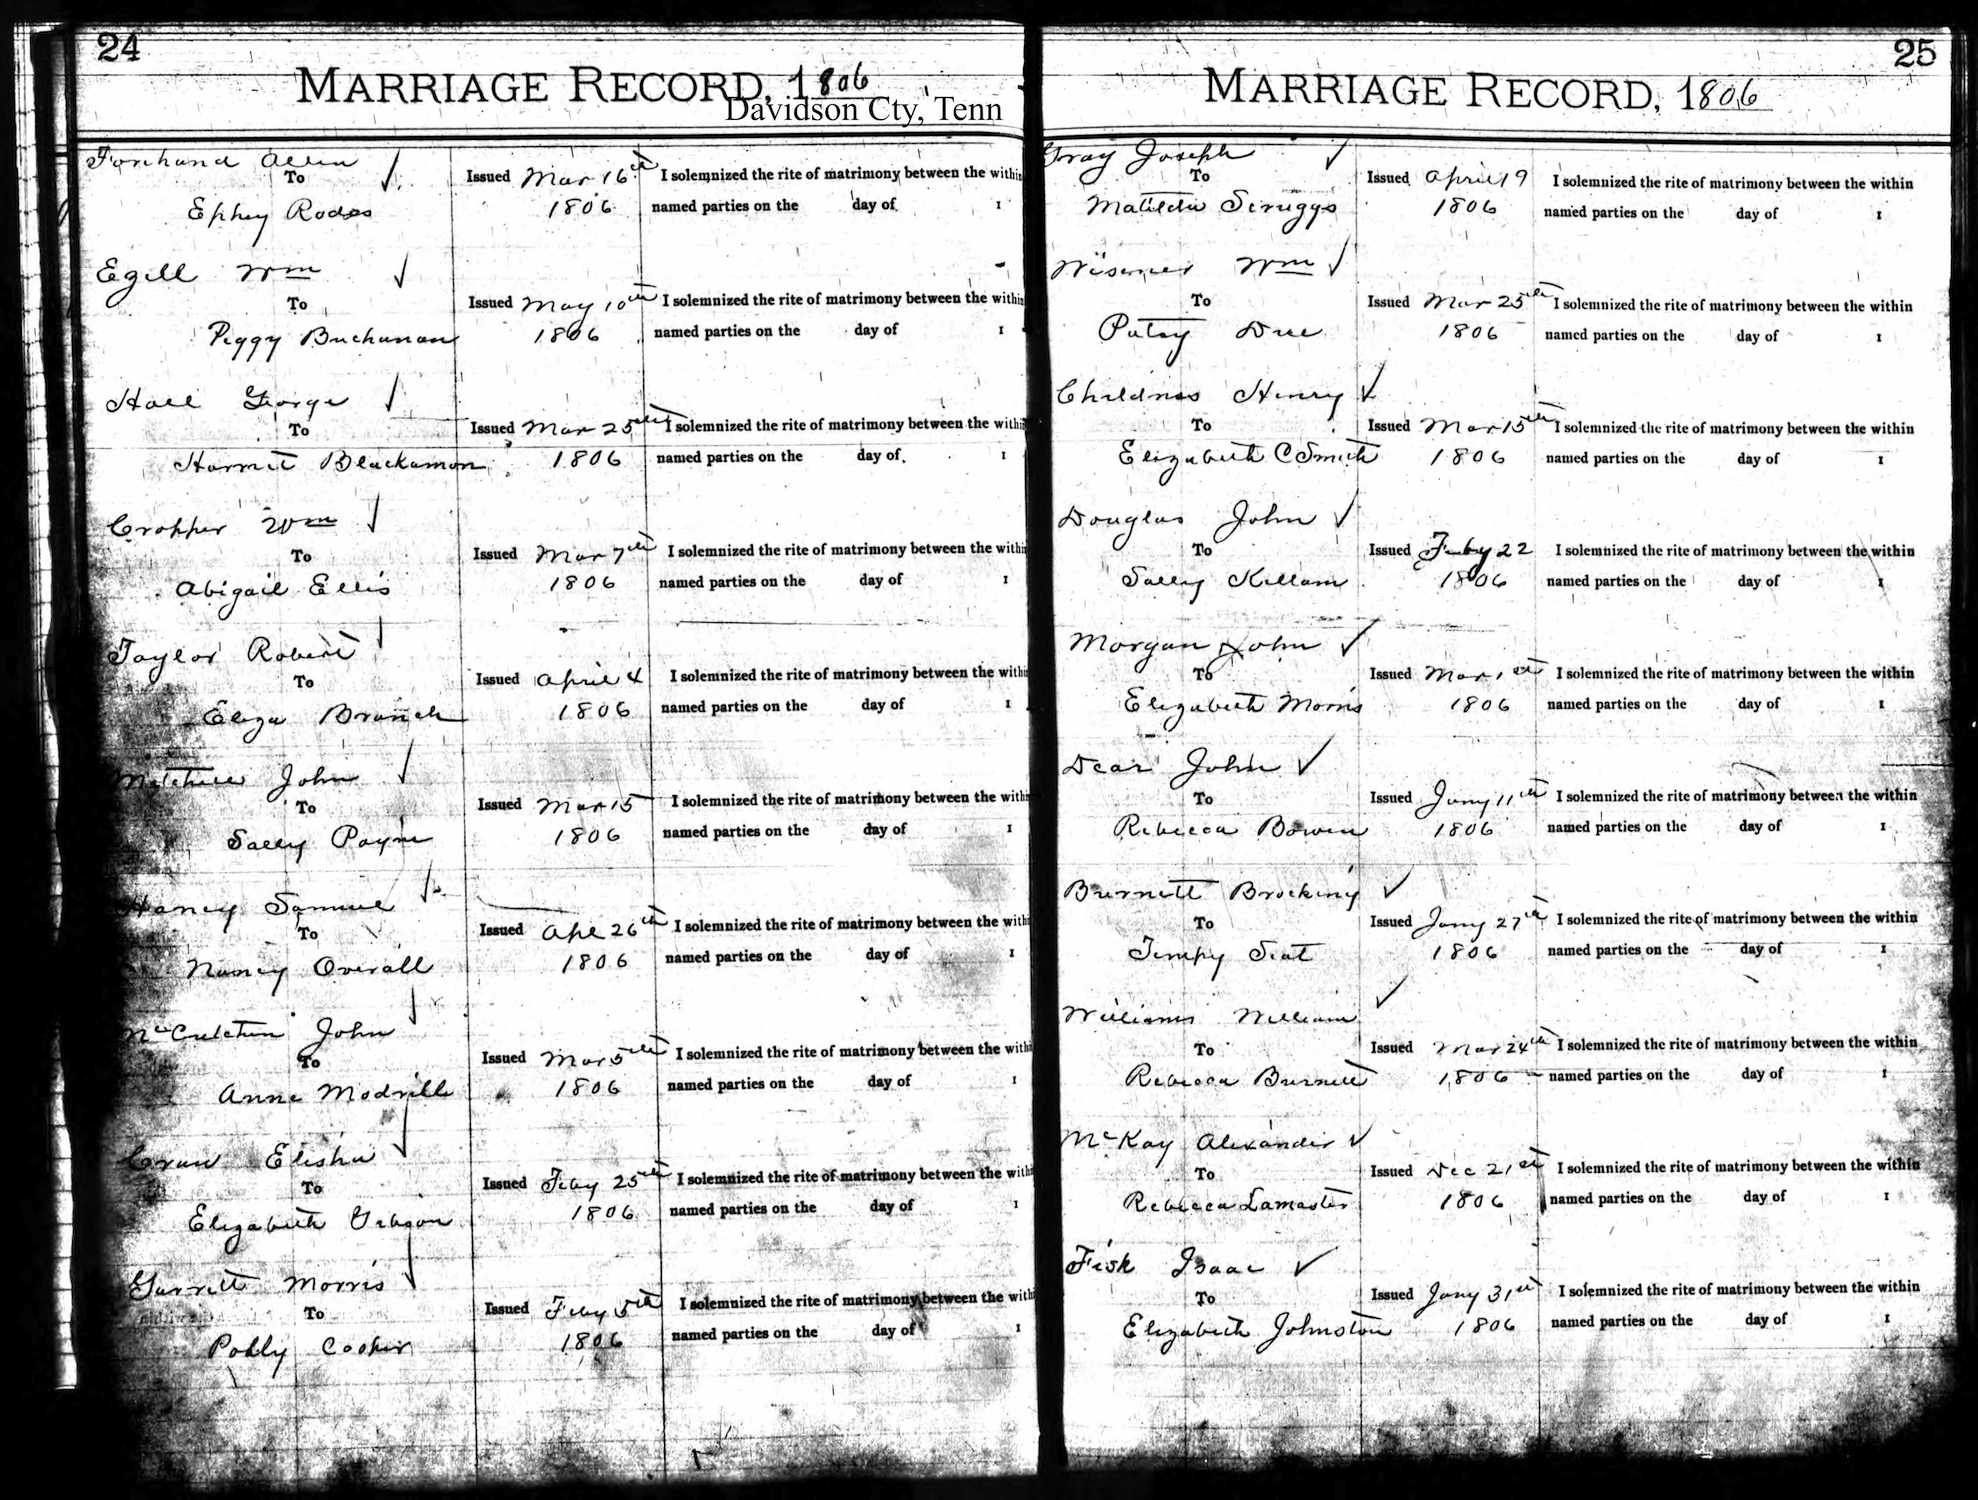 24
MARRIAGE RECORD, 1806
Davidson Cty, Tenn
Forehand Allen
To
Ephey Rodes
Issued Mar 16th
1806
I solemnized the rite of matrimony between the within
named parties on the day of 1
Egill Wm
To
Peggy Buchanan
Issued May 10th
1806
I solemnized the rite of matrimony between the within
named parties on the day of 1
Hall George
To
Harriet Blackamon
Issued Mar 25th
1806
I solemnized the rite of matrimony between the within
named parties on the day of 1
Cropper Wm
To
Abigail Ellis
Issued Mar 7th
1806
I solemnized the rite of matrimony between the within
named parties on the day of 1
Taylor Robert
To
Eliza Branch
Issued April 4
1806
I solemnized the rite of matrimony between the within
named parties on the day of 1
Mitchell John
To
Sally Payne
Issued Mar 15
1806
I solemnized the rite of matrimony between the within
named parties on the day of 1
Haney Samuel
To
Nancy Overall
Issued Apl 26th
1806
I solemnized the rite of matrimony between the within
named parties on the day of 1
McCutchen John
To
Anne Modrille
Issued Mar 5th
1806
I solemnized the rite of matrimony between the within
named parties on the day of 1
Elisha
To
Elizabeth Gibson
Issued Feby 25th
1806
I solemnized the rite of matrimony between the within
named parties on the day of 1
Garrett Morris
To
Polly Cooper
Issued Feby 5th
1806
I solemnized the rite of matrimony between the within
named parties on the day of 1
25
MARRIAGE RECORD, 1806
Gray Joseph
To
Matilda Scruggs
Issued April 9
1806
I solemnized the rite of matrimony between the within
named parties on the day of 1
Wisener Wm
To
Patsy Due
Issued Mar 25th
1806
I solemnized the rite of matrimony between the within
named parties on the day of 1
Childress Henry
To
Elizabeth C Smith
Issued Mar 15th
1806
I solemnized the rite of matrimony between the within
named parties on the day of 1
Douglas John
To
Sally Killam
Issued Feby 22
1806
I solemnized the rite of matrimony between the within
named parties on the day of 1
Morgan John
To
Elizabeth Morris
Issued Mar 1st
1806
I solemnized the rite of matrimony between the within
named parties on the day of 1
Dear John
To
Rebecca Bowen
Issued Jany 11th
1806
I solemnized the rite of matrimony between the within
named parties on the day of 1
Burnett Brocking
To
Tempy Seat
Issued Jany 27th
1806
I solemnized the rite of matrimony between the within
named parties on the day of 1
Williams William
To
Rebecca Burnett
Issued Mar 24th
1806
I solemnized the rite of matrimony between the within
named parties on the day of 1
McKay Alexander
To
Rebecca Lamaster
Issued Dec 21st
1806
I solemnized the rite of matrimony between the within
named parties on the day of 1
Fisk Isaac
To
Elizabeth Johnston
Issued Jany 31st
1806
I solemnized the rite of matrimony between the within
named parties on the day of 1